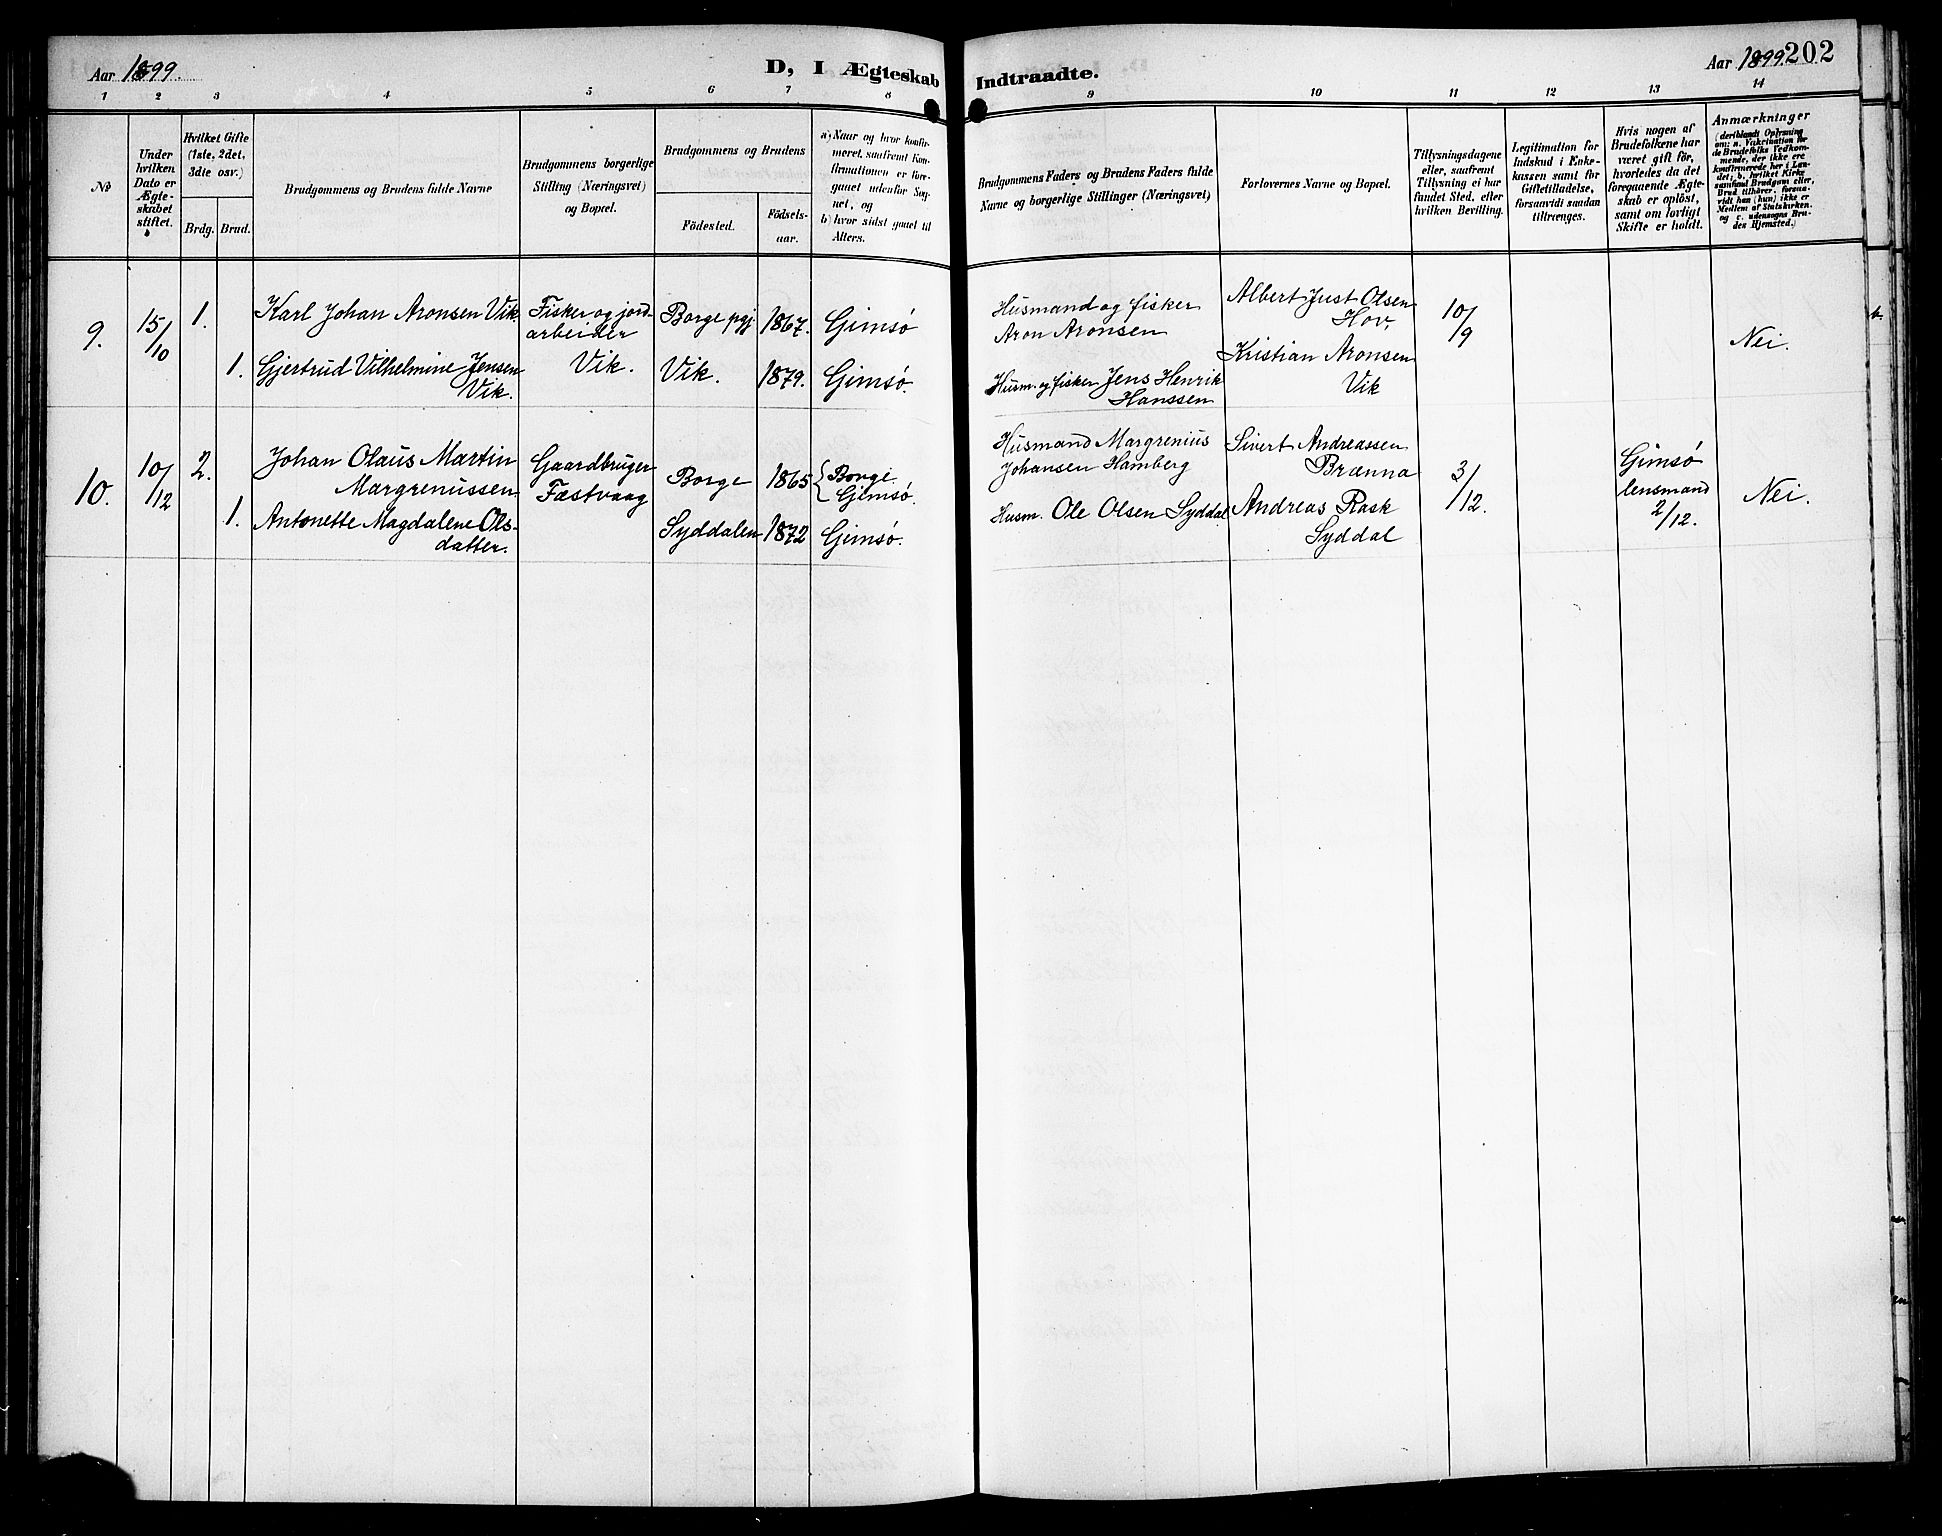 Aar 1899.
D, I Ægteskab
Indtraadte.
Aar 1899.
202
1 2 3 4 5 6 7 8 9 10 11 12 13 14
No
Under
hvilken
Dato er
Ægte-
skabet
stiftet.
Hvilket Gifte
(1ste, 2det,
3dte osv.)
Brdg. Brud.
Brudgommens og Brudens fulde Navne
Brudgommens borgerlige
Stilling (Næringsvei)
og Bopæl.
Brudgommens og Brudens
Födested.
Födsels-
aar.
a) Naar og hvor konfir-
meret, saafremt Kon-
firmationen er fore-
gaaet udenfor Sog-
net, og
b) hvor sidst gaaet til
Alters.
Brudgommens Faders og Brudens Faders fulde
Navne og borgerlige Stillinger (Næringsvei)
Forlovernes Navne og Bopæl.
Tillysningsdagene
eller, saafremt
Tillysning ei har
fundet Sted, efter
hvilken Bevilling.
Legitimation for
Indskud i Enke-
kassen samt for
Giftetilladelse,
forsaavidt saadan
tiltrænges.
Hvis nogen af
Brudefolkene har
været gift för,
hvorledes da det
foregaaende Ægte-
skab er oplöst,
samt om lovligt
Skifte er holdt.
Anmærkninger
(deriblandt Oplysning
om: a. Vakcination for
de Brudefolks Vedkom-
mende, der ikke ere
konfirmerede her i Lan-
det; b. hvilket Kirke-
samfund Brudgom eller
Brud tilhörer, forsaa-
vidt han (hun) ikke er
Medlem af Statskirken,
og c. udensogns Bru-
des Hjemsted.)
9.
15/10
1.
Karl Johan Aronsen Vik.
Fisker og jord-
arbeider
Vik.
Borge pgj.
1867.
Gimsö
Husmand og fisker
Aron Aronsen
Albert Just Olsen
Hov,
10/9
Nei.
1.
Gjertrud Vilhelmine Jensen
Vik.
Vik.
1879.
Gimsö.
Husm. og fisker Jens Henrik
Hanssen
Kristian Aronsen
Vik
10.
10/12
2.
Johan Olaus Martin
Margrenussen
Gaardbruger
Fæstvaag
Borge
1865
Borge
Gimsö.
Husmand Margrenius
Johansen Hamberg
Sivert Andreassen
Brænna
3/12.
Gimsö
lensmand
2/12.
Nei.
1.
Antonette Magdalene Ols-
datter.
Syddalen
1872
Gimsö.
Husm. Ole Olsen Syddal
Andreas Rask
Syddal